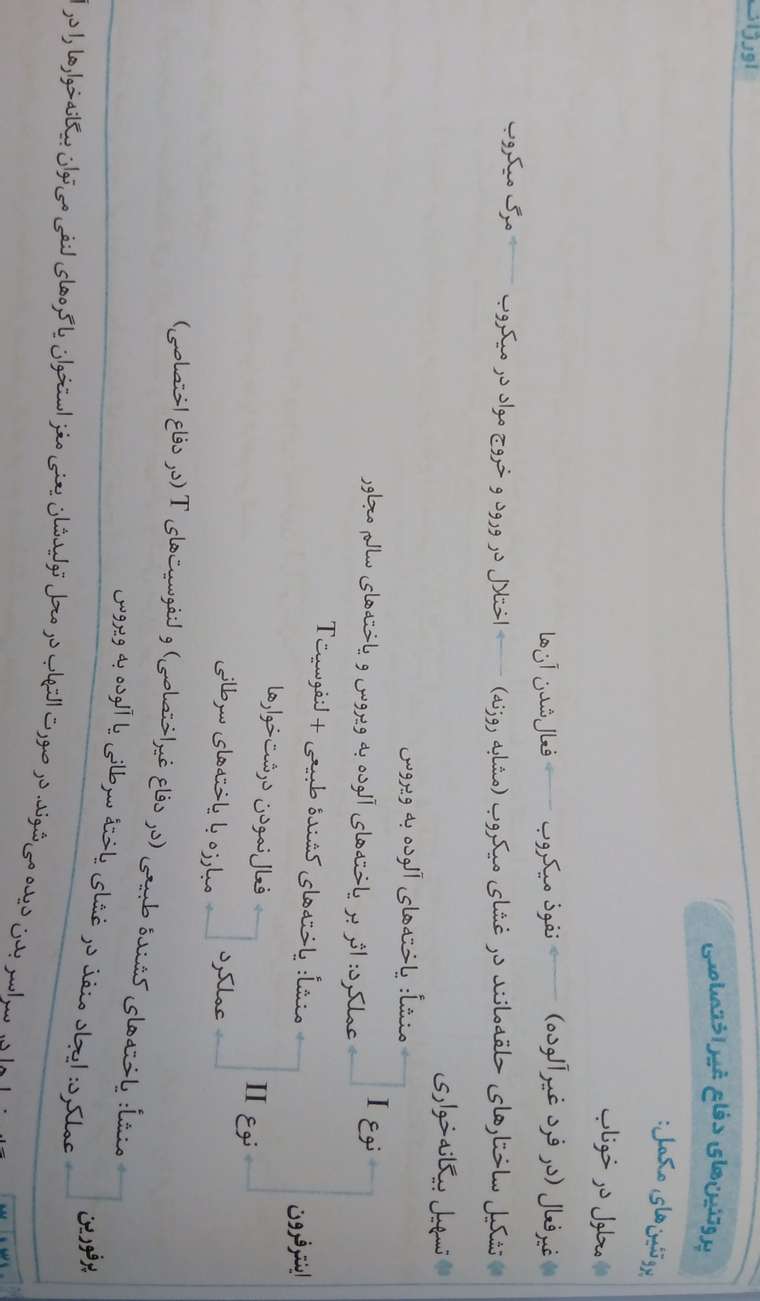 پروتئین‌های دفاع غیراختصاصی
پروتئین‌های مکمل:
محلول در خوناب
غیرفعال (در فرد غیرآلوده) ← نفوذ میکروب ← فعال‌شدن آن‌ها
تشکیل ساختارهای حلقه‌مانند در غشای میکروب (مشابه روزنه) ← اختلال در ورود و خروج مواد در میکروب ← مرگ میکروب
تسهیل بیگانه‌خواری
منشأ: یاخته‌های آلوده به ویروس
نوع I
عملکرد: اثر بر یاخته‌های آلوده به ویروس و یاخته‌های سالم مجاور
اینترفرون
منشأ: یاخته‌های کشندهٔ طبیعی + لنفوسیت T
نوع II
فعال‌نمودن درشت‌خوارها
عملکرد
مبارزه با یاخته‌های سرطانی
منشأ: یاخته‌های کشندهٔ طبیعی (در دفاع غیراختصاصی) و لنفوسیت‌های T (در دفاع اختصاصی)
پرفورین
عملکرد: ایجاد منفذ در غشای یاختهٔ سرطانی یا آلوده به ویروس
در سراسر بدن دیده می‌شوند. در صورت التهاب در محل تولیدشان یعنی مغز استخوان یا گره‌های لنفی می‌توان بیگانه‌خوارها را در